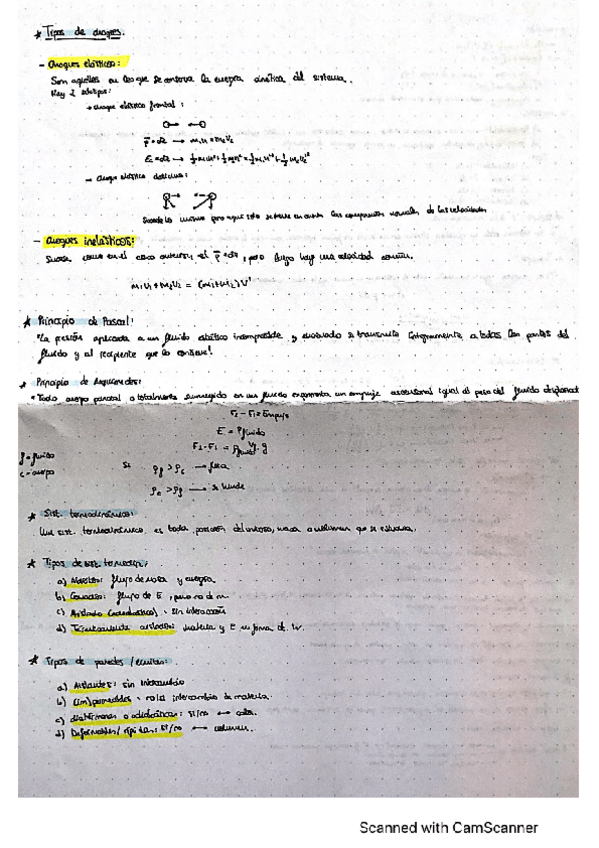 * Tipos de choques.
- Choques elásticos:
Son aquellos en los que se conserva la energía cinética del sistema.
Hay 2 subtipos:
→ choque elástico frontal:
→ choque elástico oblicuo:
Sucede lo mismo pero aquí se tiene en cuenta las componentes normales de las velocidades
- Choques inelásticos:
Sucede como en el caso anterior, el p = cte, pero luego hay una velocidad común.
m₁v₁ + m₂v₂ = (m₁+m₂) v'
* Principio de Pascal:
"La presión aplicada a un fluido estático incompresible y encerrado se transmite íntegramente a todas las partes del
fluido y al recipiente que lo contiene".
* Principio de Arquímedes:
"Todo cuerpo parcial o totalmente sumergido en un fluido experimenta un empuje ascensional igual al peso del fluido
F₂ - F₁ = Empuje
E = Pfluido
f = fluido
c = cuerpo
Si ρf > ρc → flota
→ se hunde
* Sist. termodinámicos:
Un sist. termodinámico es toda porción del universo,
* Tipos de sist. termodin.:
a) Abiertos: flujo de masa y energía
b) Cerrados: flujo de E, pero no de m
c) Aislado : sin interacción
d) Térmicamente aislados: materia y E en forma de W.
* Tipos de paredes /
a) Aislantes: sin intercambio
b) (Im)permeables : no/sí intercambio de materia.
c) diatérmanas o adiabáticas: sí/no ↔ calor.
d) Deformables/ rígidas: sí/no ↔ volumen.
Scanned with CamScanner